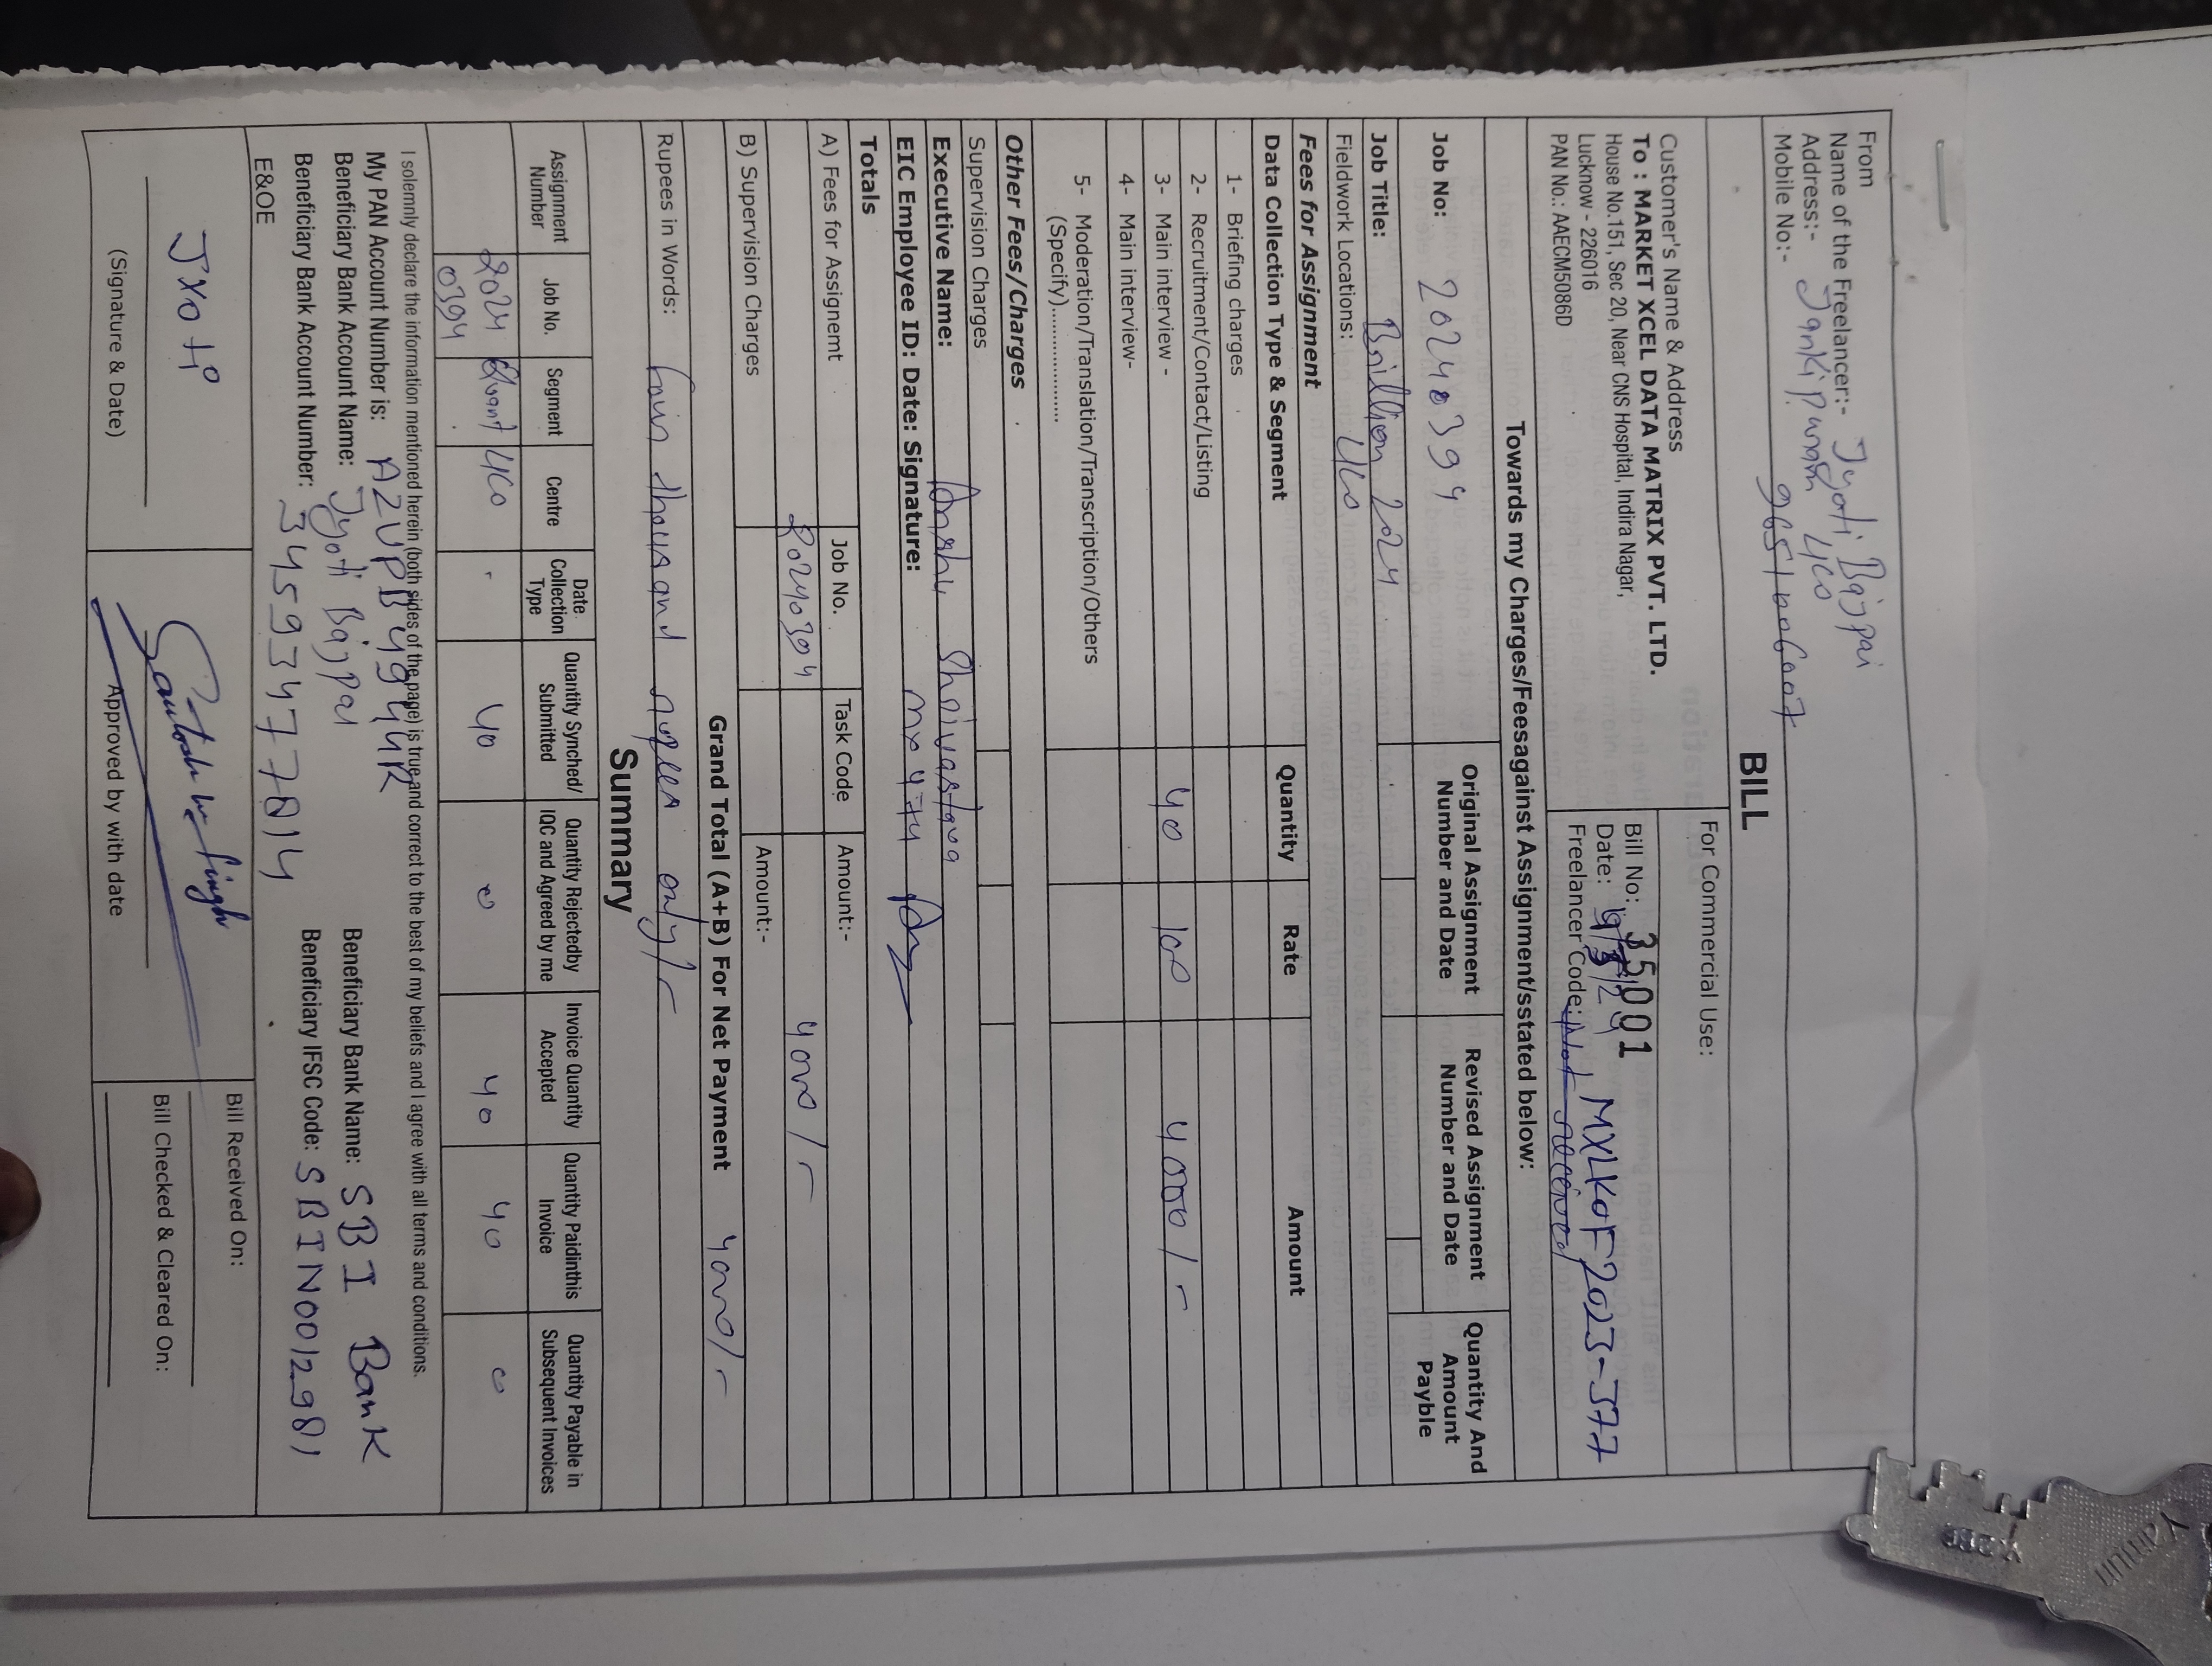 From
Name of the Freelancer:- Jyoti Bajpai
Address:- Jankipuram LKO
Mobile No:-
BILL
Customer's Name & Address
To : MARKET XCEL DATA MATRIX PVT. LTD.
House No.151, Sec 20, Near CNS Hospital, Indira Nagar,
Lucknow - 226016
PAN No.: AAECM5086D
For Commercial Use:
Bill No: 35001
Date:
Freelancer Code: Not received MXLKOF2023-377
Towards my Charges/Feesagainst Assignment/sstated below:
Job No: 20240394
Original Assignment Number and Date
Revised Assignment Number and Date
Quantity And Amount Payble
Job Title: Brillion 2024
Fieldwork Locations: LKO
Fees for Assignment
Data Collection Type & Segment Quantity Rate Amount
1- Briefing charges
2- Recruitment/Contact/Listing
3- Main interview - 40 100 4000/-
4- Main interview-
5- Moderation/Translation/Transcription/Others
(Specify)..................
Other Fees/Charges
Supervision Charges
Executive Name: Anshu Shrivastava
EIC Employee ID: Date: Signature: mx 4774
Totals
A) Fees for Assignemt Job No. Task Code Amount:-
20240394 4000/-
B) Supervision Charges Amount:-
Grand Total (A+B) For Net Payment 4000/-
Rupees in Words: Four thousand rupees only/-
Summary
Assignment Number Job No. Segment Centre Date Collection Type Quantity Synched/ Submitted Quantity Rejectedby IQC and Agreed by me Invoice Quantity Accepted Quantity Paidinthis Invoice Quantity Payable in Subsequent Invoices
20240394 Quant LKO - 40 0 40 40 0
I solemnly declare the information mentioned herein (both sides of the page) is true and correct to the best of my beliefs and I agree with all terms and conditions.
My PAN Account Number is: AZUPB4944R
Beneficiary Bank Account Name: Jyoti Bajpai Beneficiary Bank Name: SBI Bank
Beneficiary Bank Account Number: 34593477814 Beneficiary IFSC Code: SBIN0012981
E&OE
Jyoti
(Signature & Date)
Approved by with date
Bill Received On:
Bill Checked & Cleared On:
Yamun